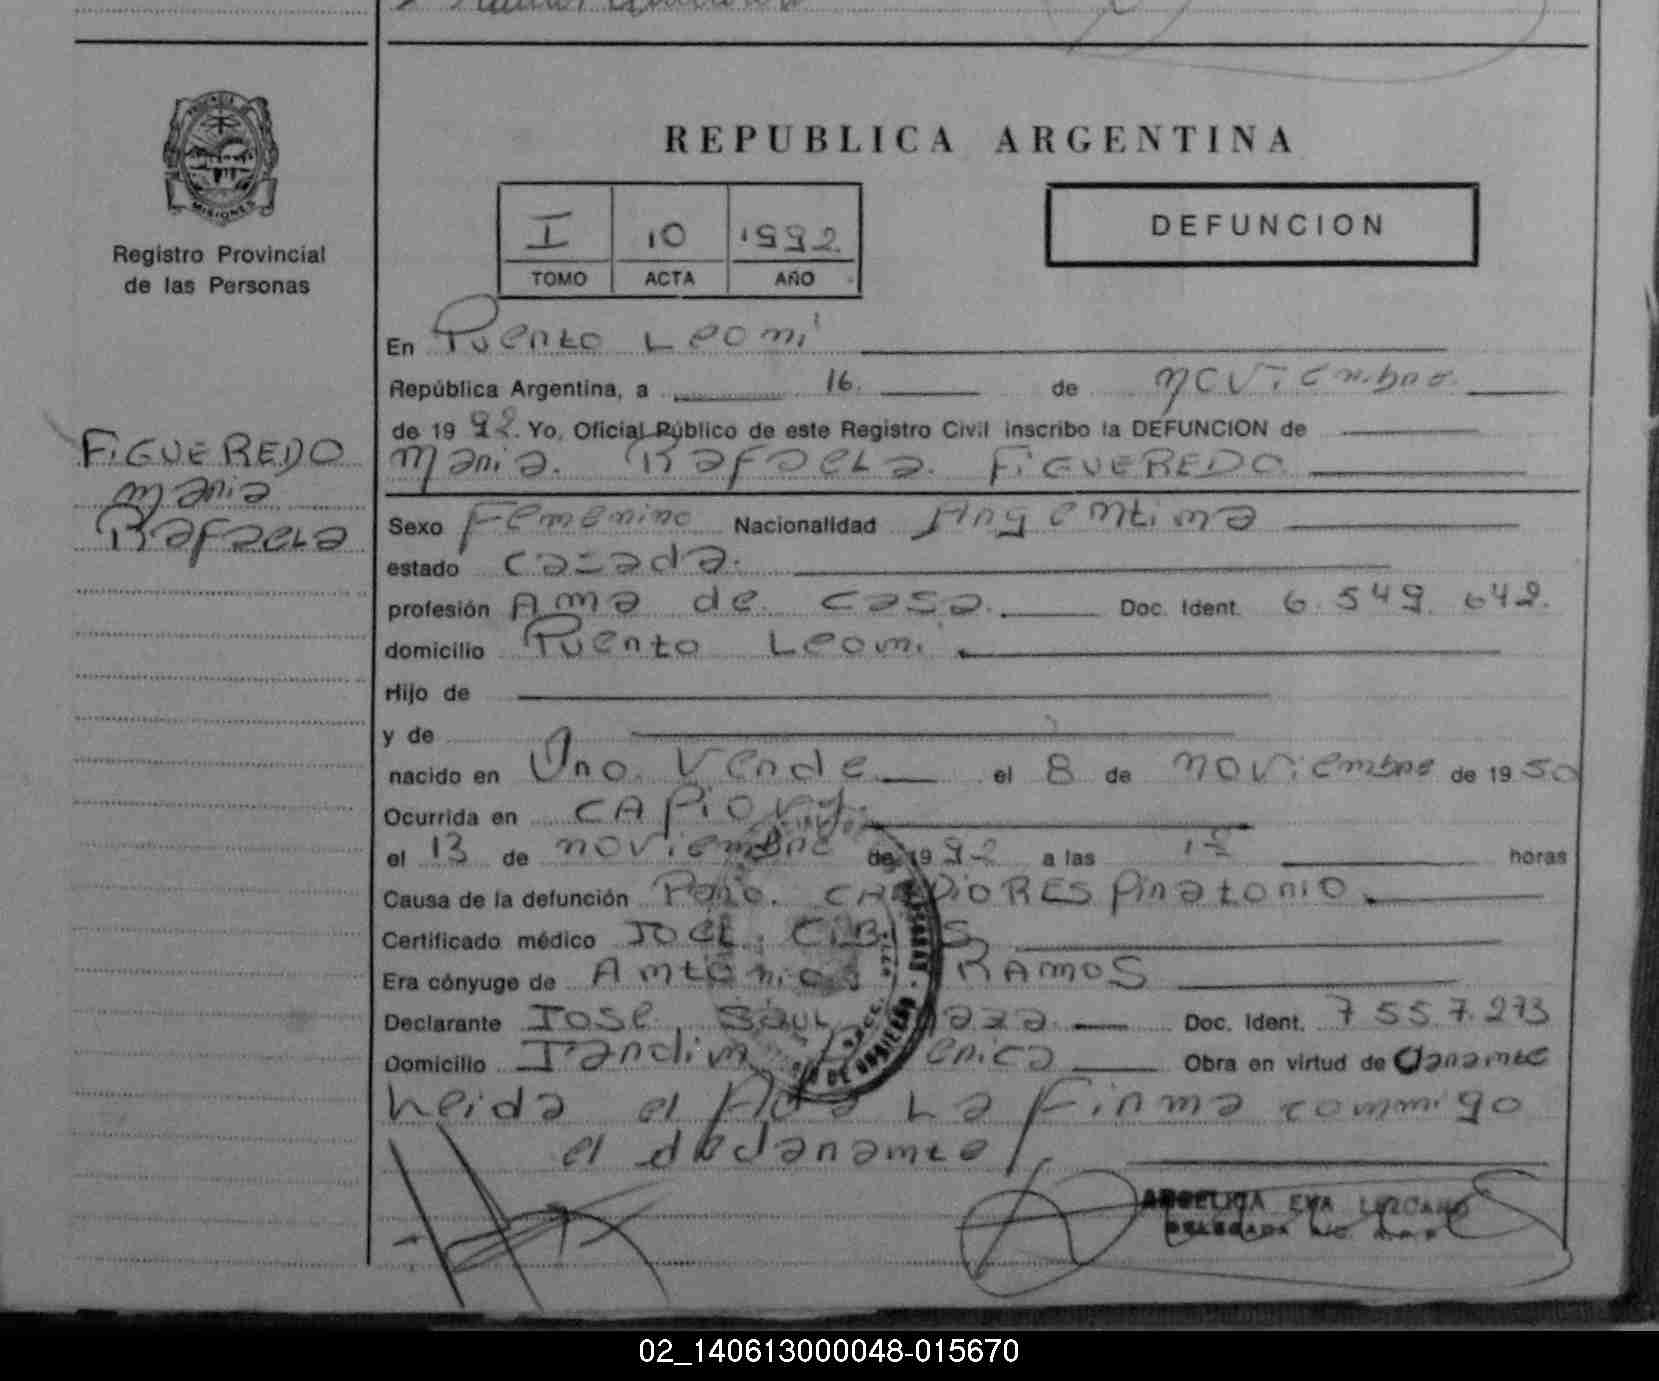 PROVINCIA DE
MISIONES
Registro Provincial
de las Personas
FIGUEREDO
Maria
Rafaela
REPUBLICA ARGENTINA
I 10 1992
TOMO ACTA AÑO
DEFUNCION
En Puerto Leoni
República Argentina, a 16 de noviembre
de 1992. Yo, Oficial Público de este Registro Civil inscribo la DEFUNCION de
Maria Rafaela FIGUEREDO
Sexo Femenino Nacionalidad Argentina
estado casada
profesión Ama de casa. Doc. Ident. 6.549.642.
domicilio Puerto Leoni
Hijo de
y de
nacido en Uno Verde el 8 de noviembre de 1950
Ocurrida en CAPIOVY.
el 13 de noviembre de 1992 a las horas
Causa de la defunción Paro. CARDIORESPiratorio.
Certificado médico
Era cónyuge de Antonio RAMOS
Declarante Jose Saul Doc. Ident. 7.557.273
Domicilio Jardin America Obra en virtud de Declarante
Leida el Acta La Firma conmigo
el declarante
ANGELICA EVA LEZCANO
DELEGADA
02_140613000048-015670